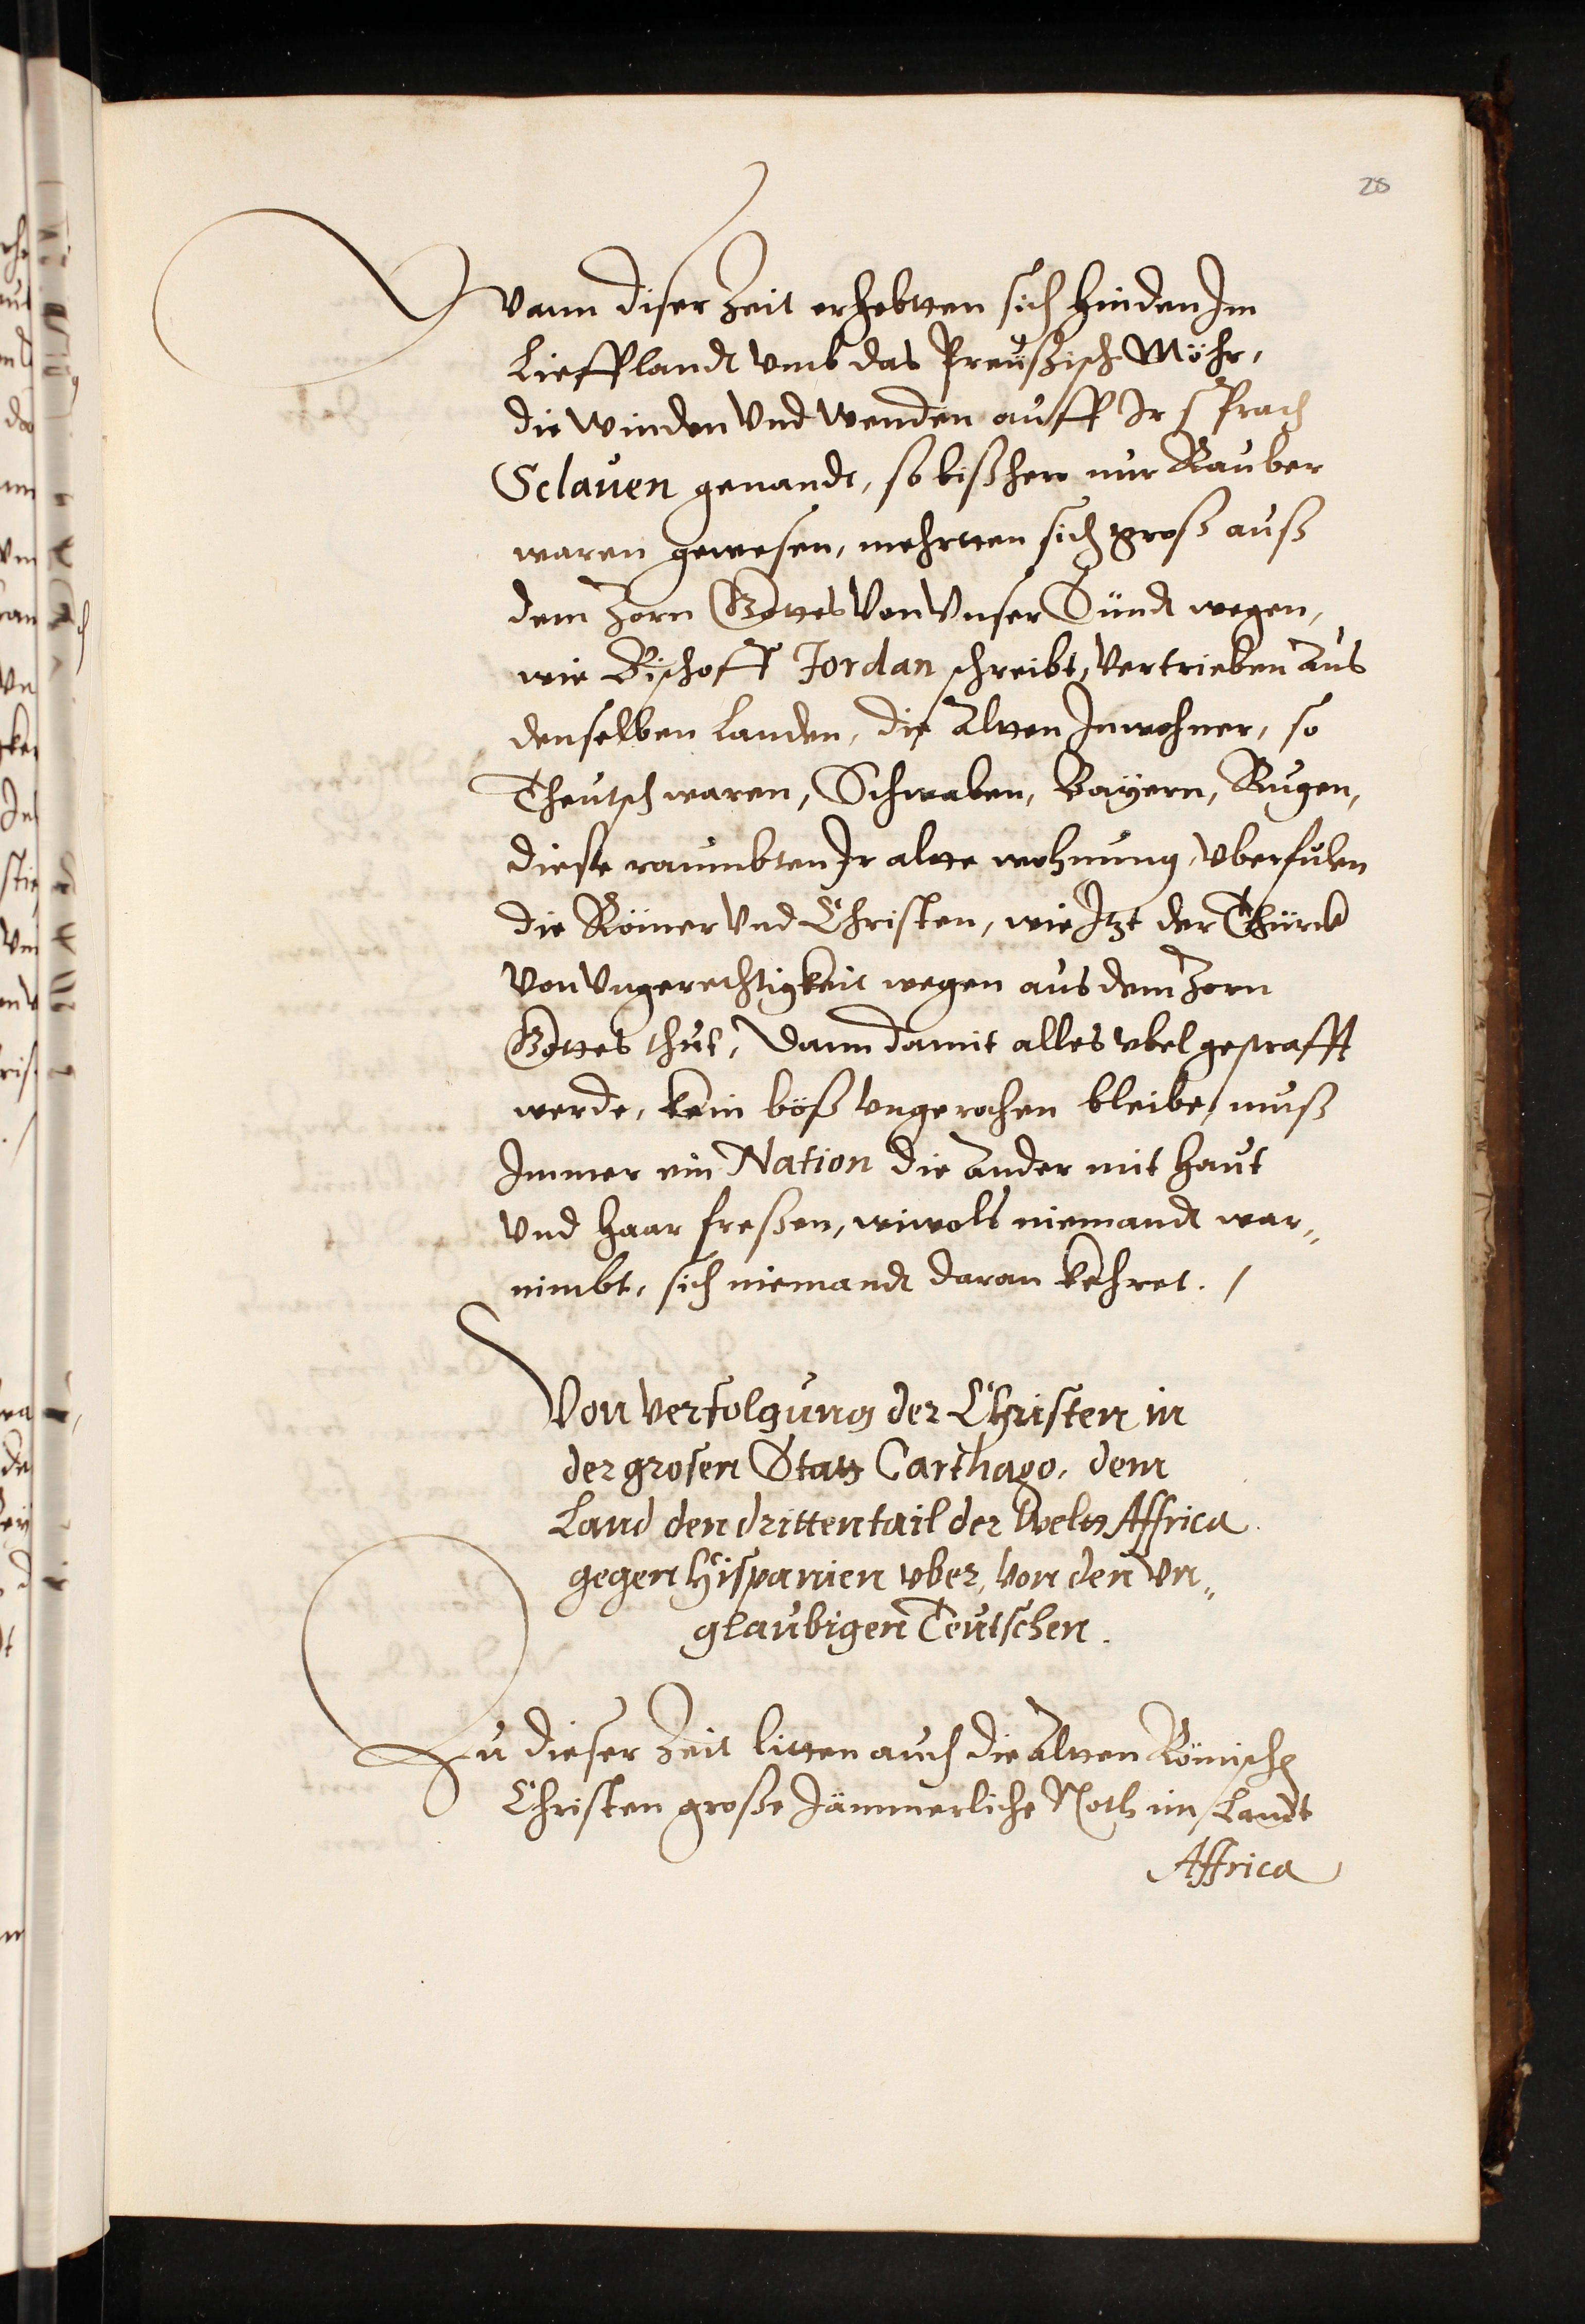 28
Vann diser Zeit erhebtten sich hinden Im
Lieffplandt vmb das Preußisch Möhr,
die Winden Vnd Wenden auff Ir sprach
Sclauen genandt, so bißhero nur Rauber
waren gewesen, mehrtten sich groß auß
dem Zorn Gottes Von Vnser Sündt wegen,
wie Bischoff Jordan schreibt, Vertrieben Aus
denselben Landen, die Altten Inwohner, so
Theutsch waren, Schwaben, Bayern, Rugen,
dieße raumbten Ir altte wohnung, vberfulen
die Römer Vnd Christen, wie Itzt der Thürck
Von Vngerechtigkeit wegen aus dem Zorn
Gottes thut, Dann damit alles vbel gestrafft
werde, kein böß Vngerochen bleibe, muß
Immer ein Nation die Ander mit Haut
Vnd Haar freßen, wiwols niemandt war„
nimbt, sich niemandt daran kehret. /
Von Verfolgung der Christen in
der grosen Statt Carthago, dem
Land den dritten tail der Weltt Affrica
gegen Hispanien vber, Von den Vn„
glaubigen Teutschen.
Zu dieser Zeit litten auch die Altten Römische
Christen große Jämmerliche Noth im Landt
Affrica